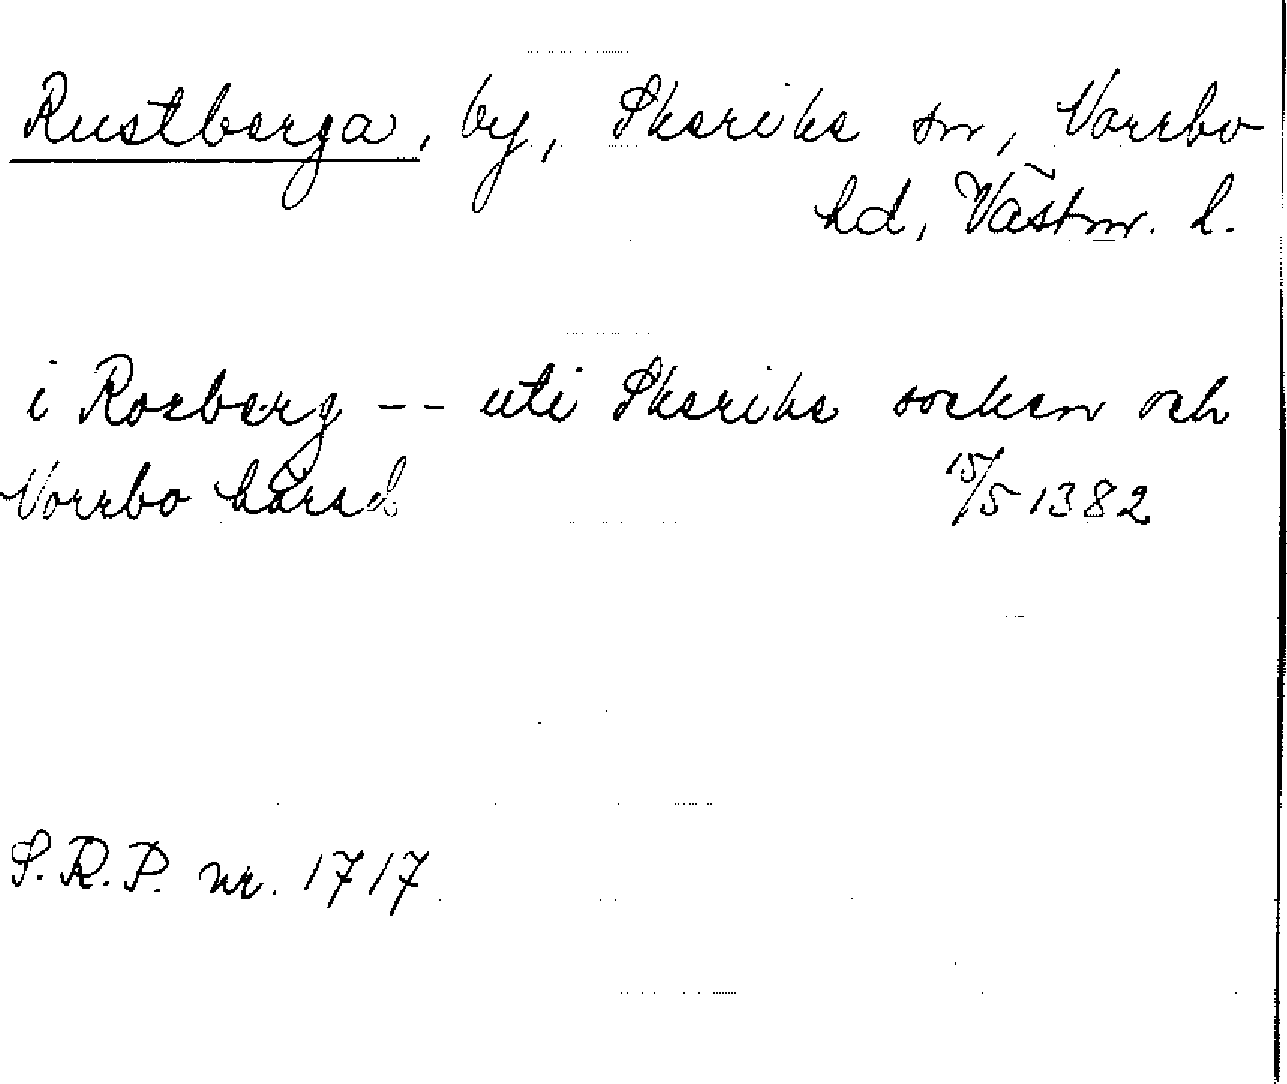 Rustberga, by, Skerike sn, Norrbo
hd, Västm. l.
i Rosberg -- uti Skerike socken och
Norrbo härad 15/5 1382
S.R.P. nr. 1717